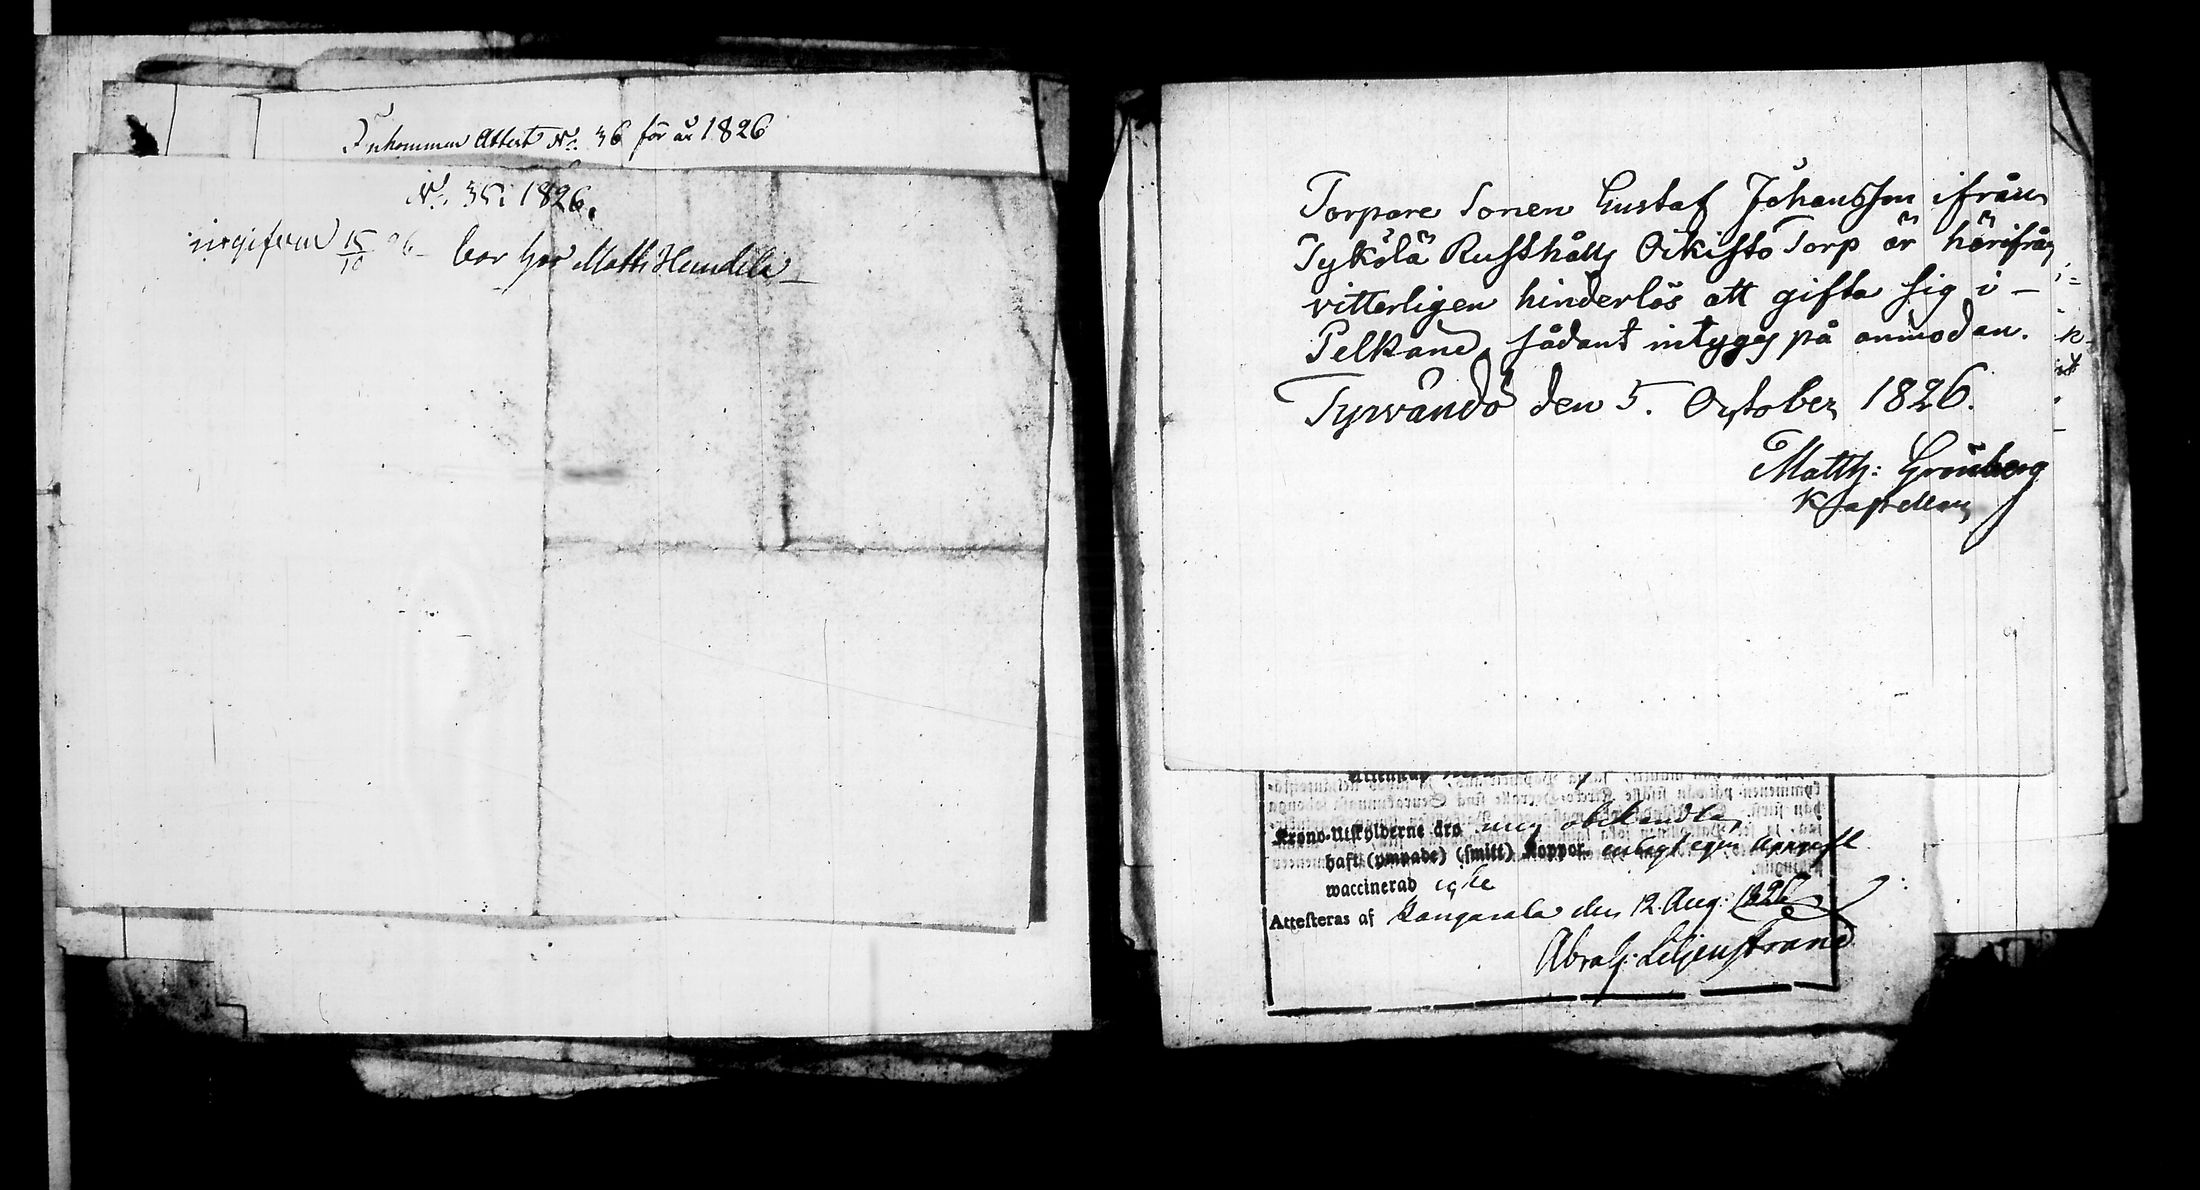 Inkommen Attest No. 36 för år 1826
No. 35. 1826.
ingifven 15/10 26 - bor hos Matts Heundila
Torpare Sonen Gustaf Johansson ifrån
Tykölä Rusthålls Oikisto Torp är härifrån
vitterligen hinderlös att gifta sig i -
Pelkäne, sådant intygas på anmodan.
Tyrwändö den 5. October 1826.
Matth: Grönberg
Kapellan
Krono-Utskylderne äro
haft (ympade) (smitt) Koppor enligt egen uppgift
waccinerad icke
Attesteras af Kangasala den 12. Aug: 1826
Abrah: Liljenstrand